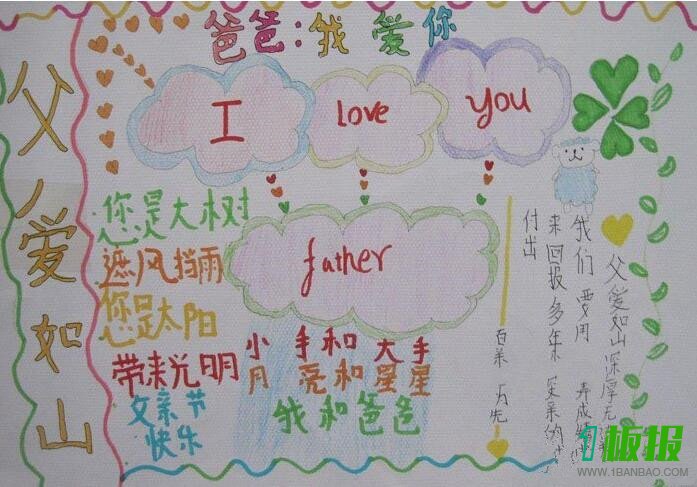 爸爸:我爱你
父爱如山
I love you
father
您是大树
遮风挡雨
您是太阳
带来光明
父亲节
快乐
小手和大手
月亮和星星
我和爸爸
父爱如山深厚无
我们要用
来回报多年父亲的
付出
1板报
WWW.1BANBAO.COM